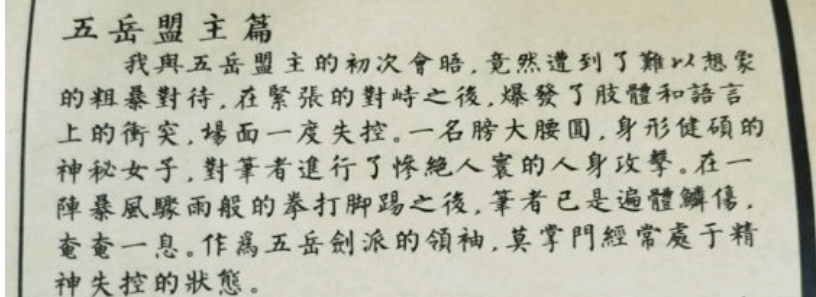 五岳盟主篇
我與五岳盟主的初次會晤,竟然遭到了難以想象
的粗暴對待,在緊張的對峙之後,爆發了肢體和語言
上的衝突,場面一度失控。一名膀大腰圓,身形健碩的
神秘女子,對筆者進行了慘絕人寰的人身攻擊。在一
陣暴風驟雨般的拳打脚踢之後,筆者已是遍體鱗傷,
奄奄一息。作爲五岳劍派的領袖,莫掌門經常處于精
神失控的狀態。